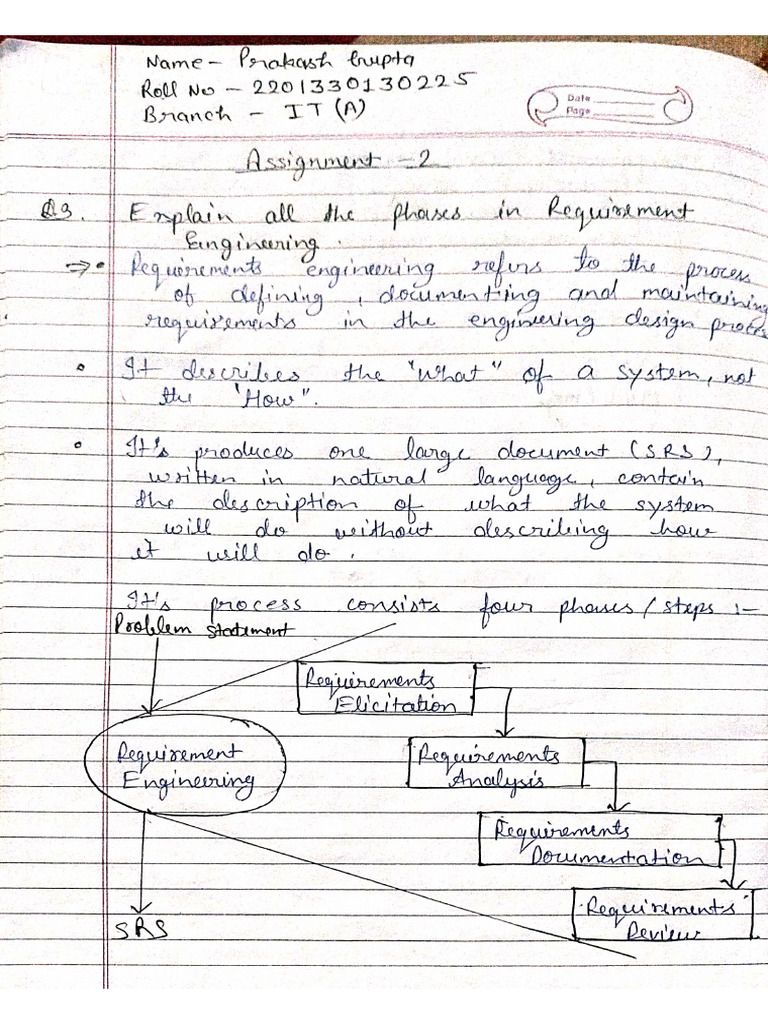 Name - Prakash Gupta
Roll No - 2201330130225
Branch - IT (A)
Date
Page
Assignment - 2
Q3. Explain all the phases in Requirement
Engineering.
⇒ • Requirements engineering refers to the process
of defining, documenting and maintaining
requirements in the engineering design proces
• It describes the "What" of a system, not
the "How".
• It's produces one large document (SRS),
written in natural language, contain
the description of what the system
will do without describing how
it will do.
It's process consists four phases / steps :-
Problem Statement
Requirements
Elicitation
Requirement
Engineering
Requirements
Analysis
Requirements
Documentation
Requirements
Review
SRS